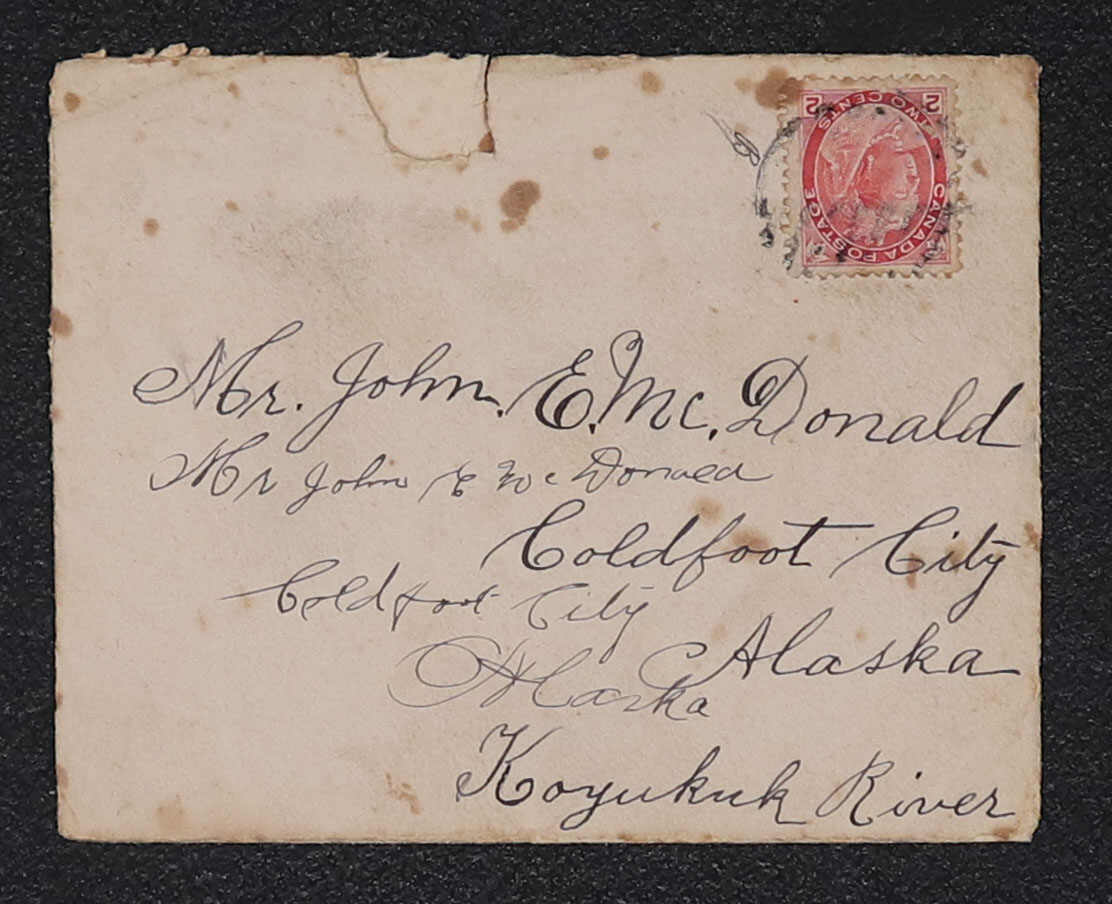 2 TWO CENTS 2
CANADA POSTAGE
Mr. John. E. Mc. Donald
Mr John E Mc Donald
Coldfoot City
Coldfoot City
Alaska
Alaska
Koyukuk River